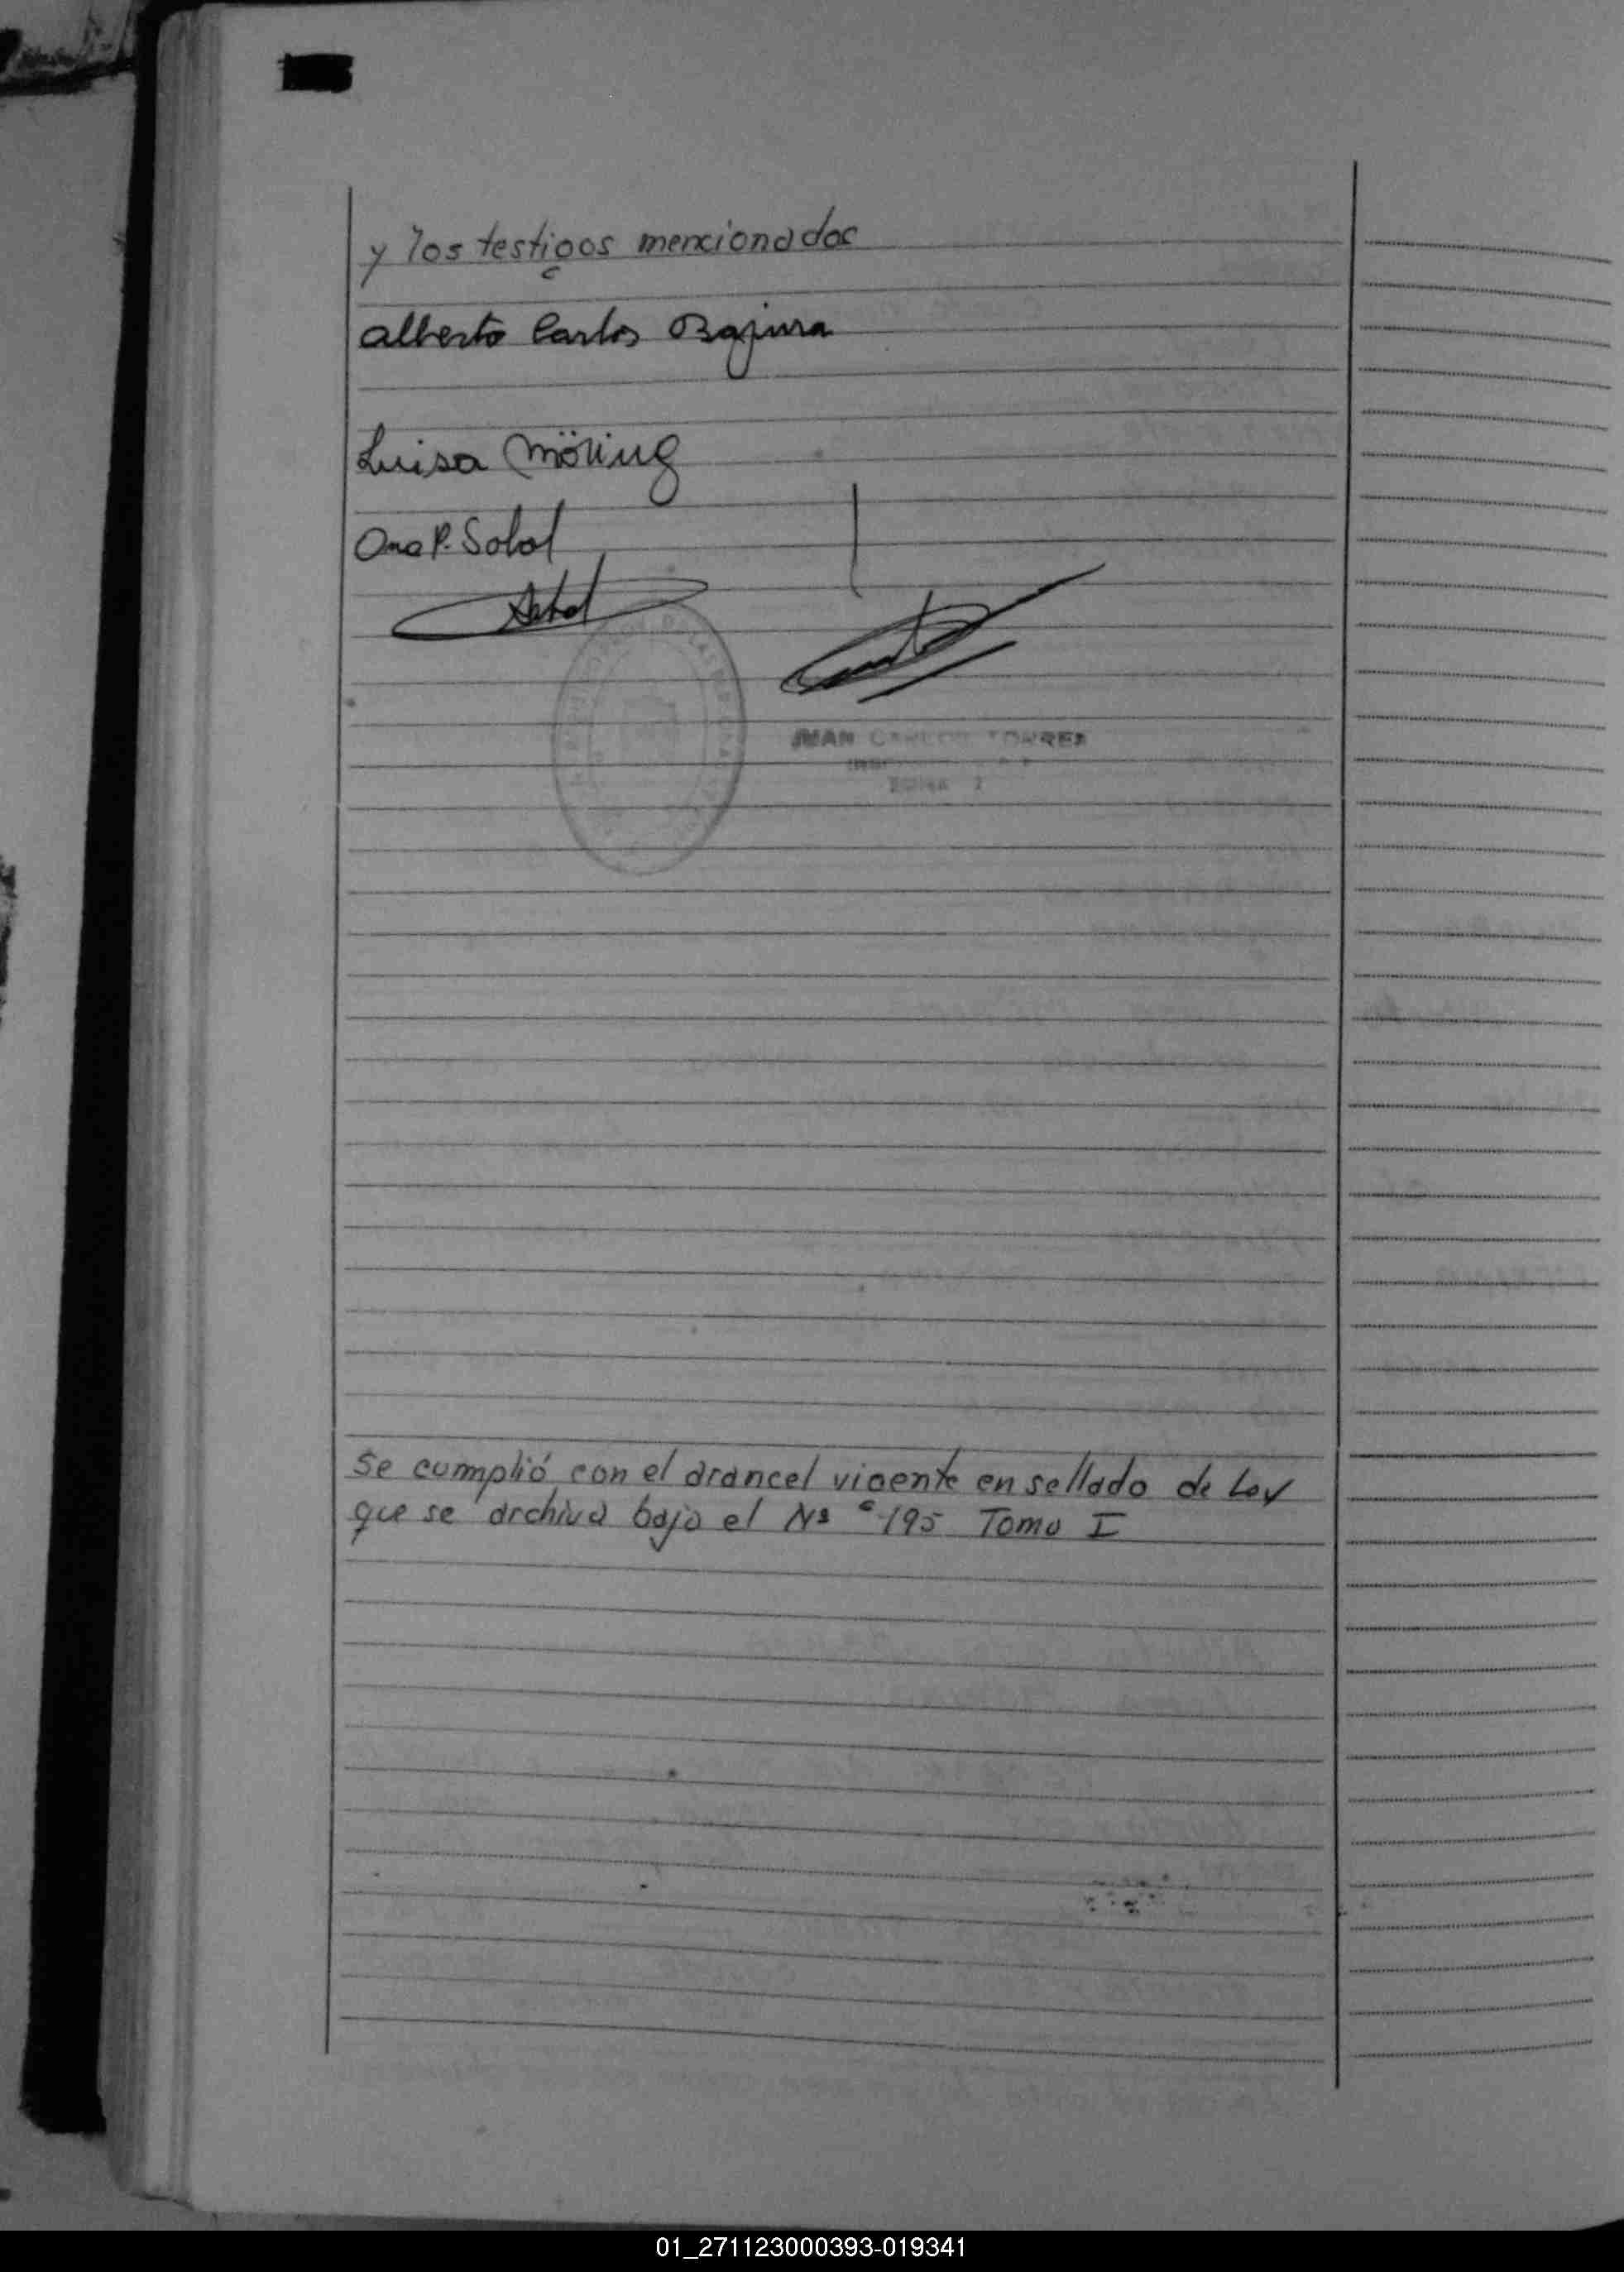 y los testigos mencionados
Alberto Carlos Bajura
Luisa Möring
Ana P. Sobol
Sobol
JUAN CARLOS TORRES
ZONA 2
Se cumplió con el arancel vigente en sellado de Ley
que se archiva bajo el Nº 195 Tomo I
01_271123000393-019341